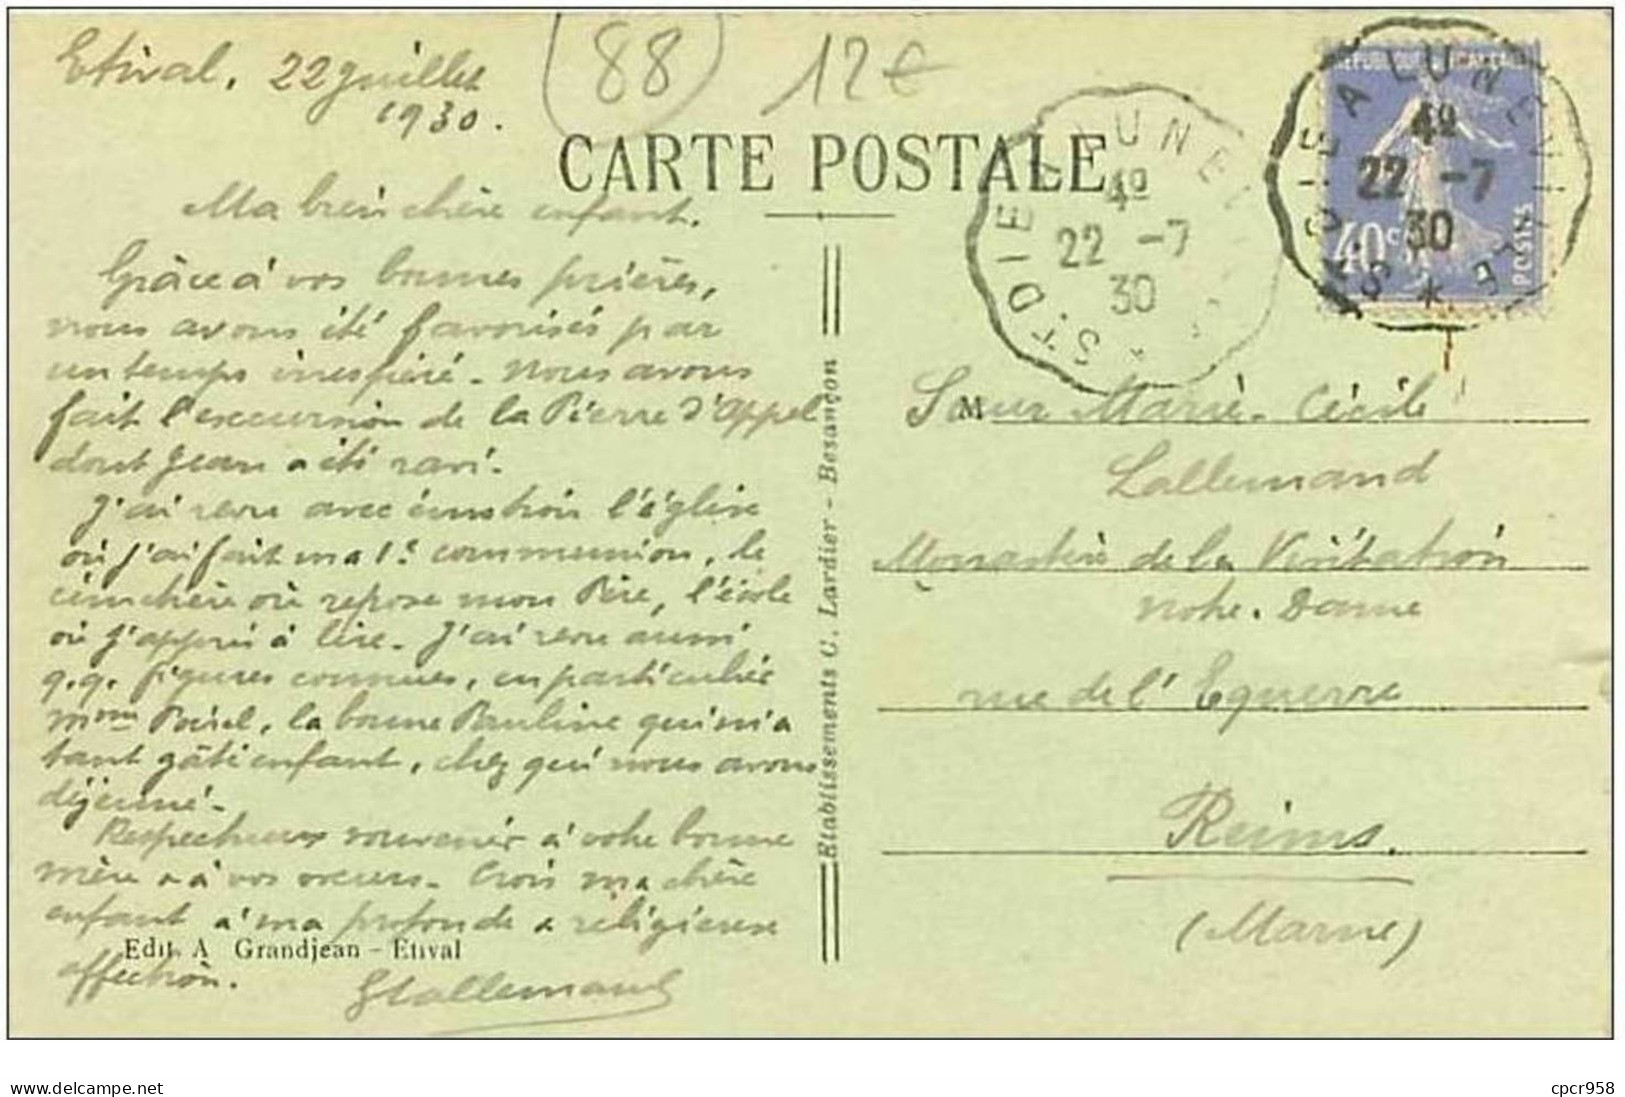 Etival, 22 Juillet
1930.
88
12€
CARTE POSTALE
Ma bien chère enfant.
Grâce à vos bonnes prières,
nous avons été favorisés par
un temps inespéré. Nous avons
fait l'excursion de la Pierre d'Appel
dont Jean a été ravi.
J'ai revu avec émotion l'église
où j'ai fait ma 1e communion, le
cimetière où repose mon Père, l'école
où j'appris à lire. J'ai revu aussi
q.q. figures connues, en particulier
Mme Poirel, la bonne Pauline qui m'a
tant gâté enfant, chez qui nous avons
déjeuné.
Respectueux souvenir à votre bonne
mère & à vos sœurs. Crois ma chère
enfant à ma profonde & religieuse
affection.
GLallemand
Edit. A Grandjean - Etival
Etablissements C. Lardier - Besançon
ST. DIE A LUNEV
4º
22 -7
30
REPUBLIQUE FRANÇAISE
40c
POSTES
ST. DIE A LUNEVILLE *
4º
22 -7
30
M
Sœur Marie-Cécile
Lallemand
Monastère de la Visitation
Notre-Dame
rue de l'Equerre
Reims.
(Marne)
delcampe.net
cpcr958